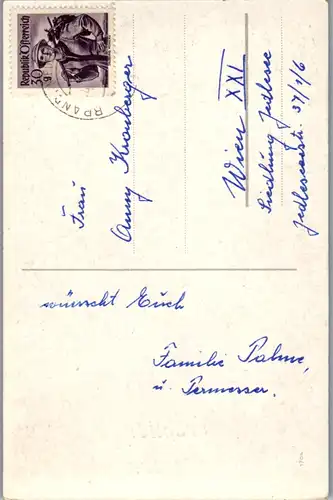 Republik Österreich
30
g
Frau
Anny Kronberger
Wien XXI
Siedlung Jedlesee
Jedleseerstr. 37/1/6
wünscht Euch
Familie Palme,
u. Permesser.